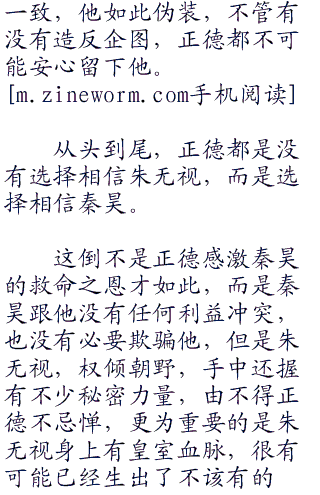 一致，他如此伪装，不管有
没有造反企图，正德都不可
能安心留下他。
[m.zineworm.com手机阅读]
从头到尾，正德都是没
有选择相信朱无视，而是选
择相信秦昊。
这倒不是正德感激秦昊
的救命之恩才如此，而是秦
昊跟他没有任何利益冲突，
也没有必要欺骗他，但是朱
无视，权倾朝野，手中还握
有不少秘密力量，由不得正
德不忌惮，更为重要的是朱
无视身上有皇室血脉，很有
可能已经生出了不该有的